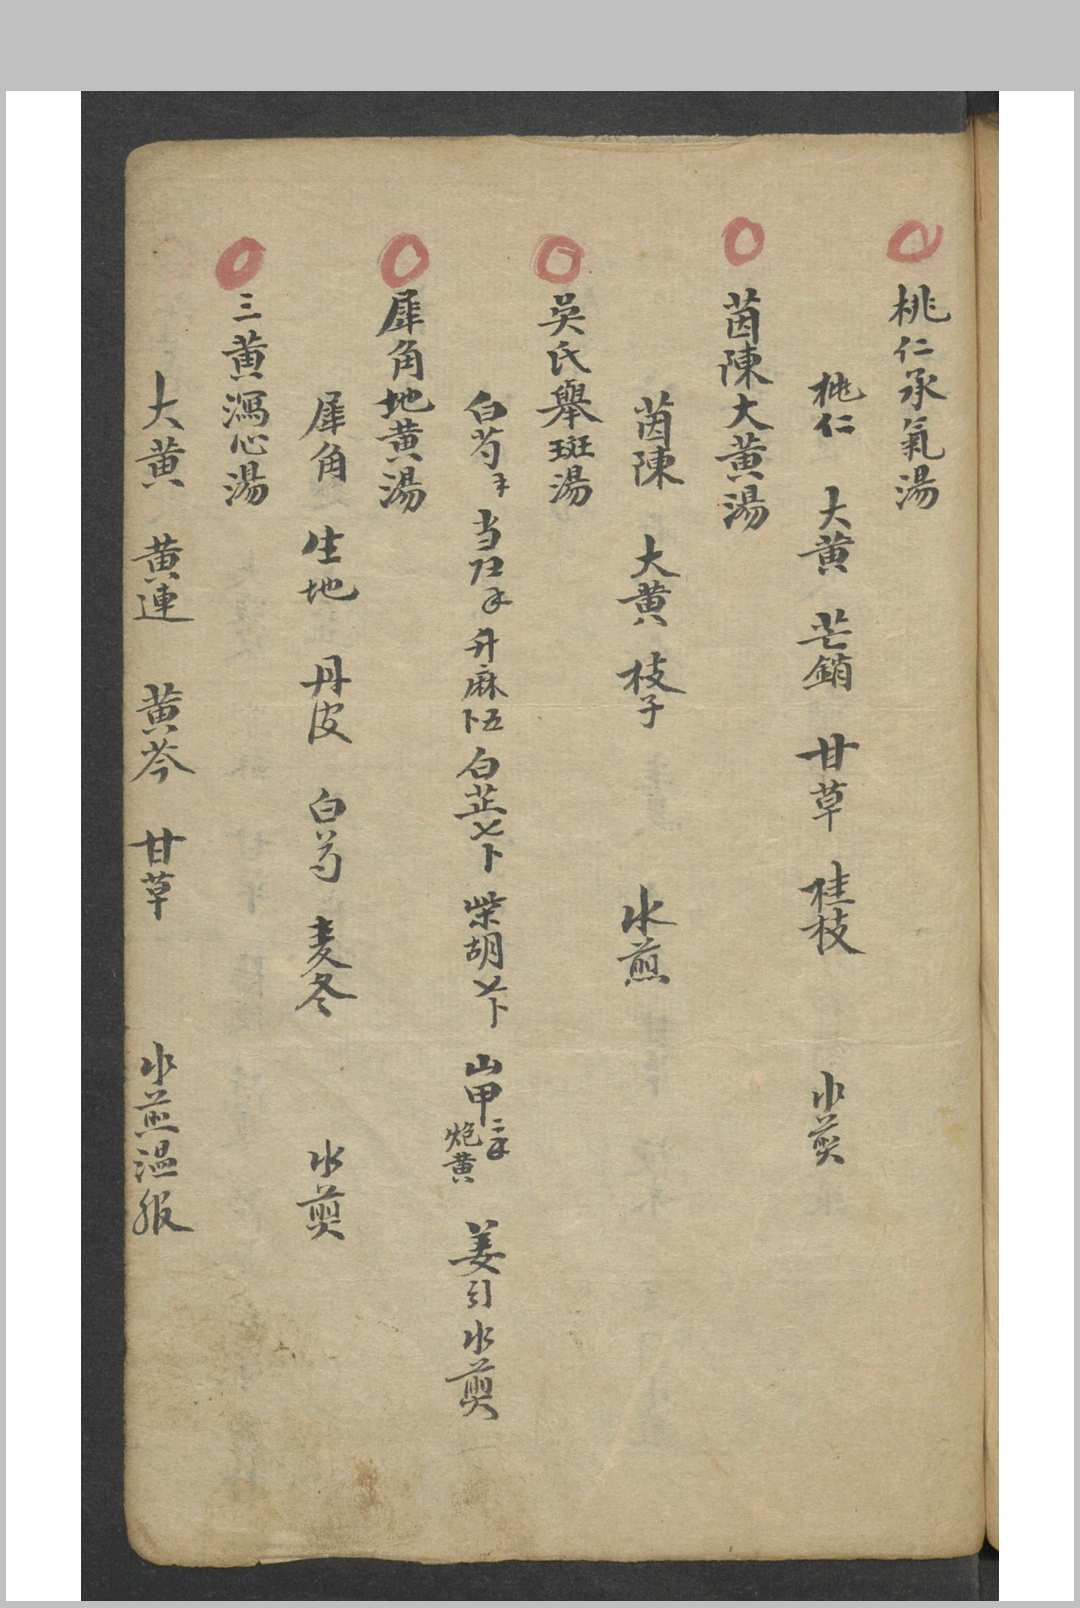 桃仁承氣湯
桃仁 大黄 芒銷 甘草 桂枝 水煎
茵陳大黄湯
茵陳 大黄 枝子 水煎
吳氏舉斑湯
白芍 当 升麻 卜五 白芷 柴胡 山甲 二 炮黄 姜引水煎
犀角地黄湯
犀角 生地 丹皮 白芍 麦冬 水煎
三黄瀉心湯
大黄 黄連 黄芩 甘草 水煎温服